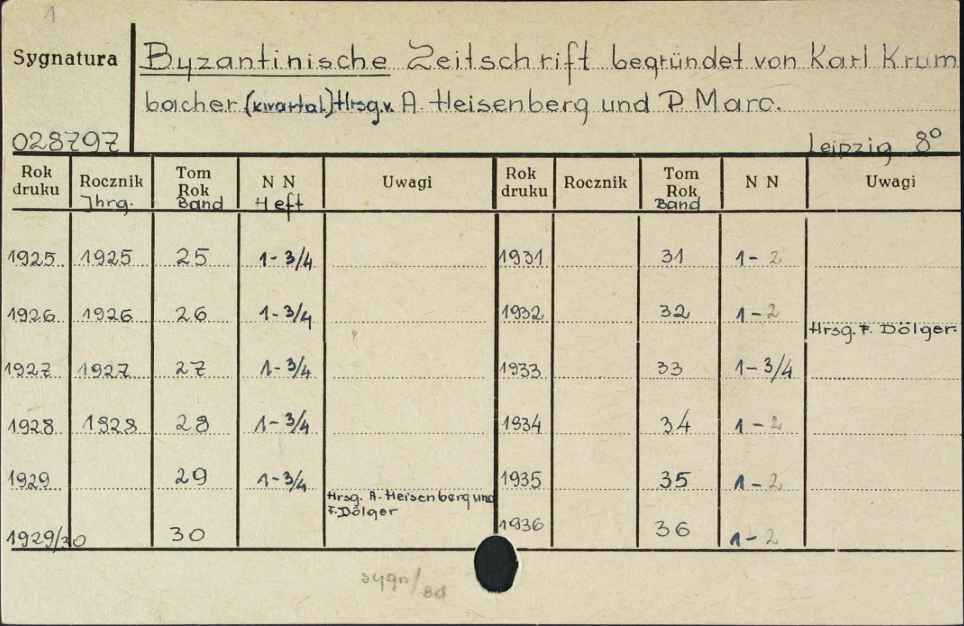 1
Sygnatura
Byzantinische Zeitschrift begründet von Karl Krum
bacher (kwartal.) Hrsg. v. A. Heisenberg und P. Marc.
028797
Leipzig 8°
Rok druku Rocznik Jhrg. Tom Rok Band N N Heft Uwagi Rok druku Rocznik Tom Rok Band N N Uwagi
1925 1925 25 1-3/4 1931 31 1-2
1926 1926 26 1-3/4 1932 32 1-2
Hrsg. F. Dölger
1927 1927 27 1-3/4 1933 33 1-3/4
1928 1928 28 1-3/4 1934 34 1-2
1929 29 1-3/4 1935 35 1-2
Hrsg. A. Heisenberg und
F. Dölger
1929/30 30 1936 36 1-2
sygn/